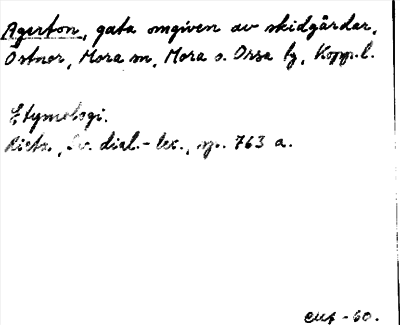 Agerton, gata omgiven av skidgårdar,
Östnor, Mora sn, Mora o. Orsa tg, Kopp.l.
Etymologi.
Rietz, Sv. dial.-lex., sp. 763 a.
-60.